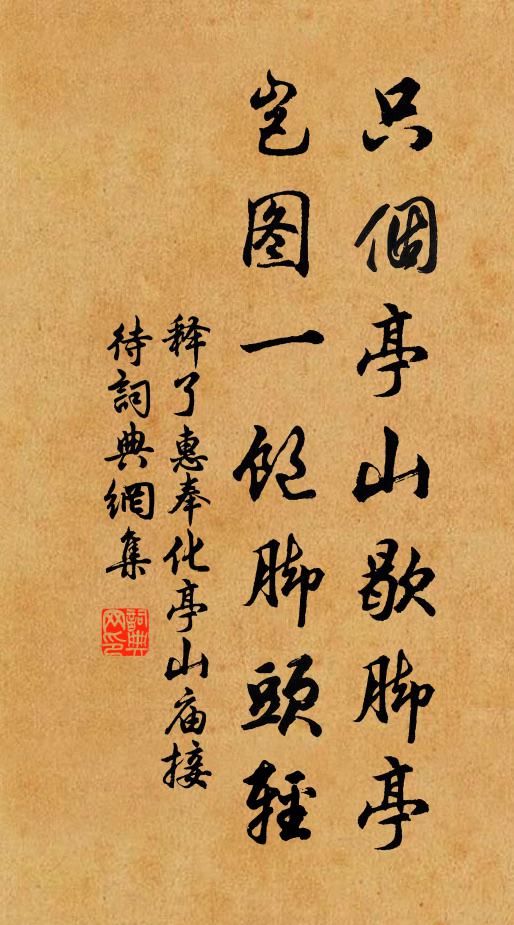 只個亭山歇脚亭
岂图一饱脚頭輕
释了惠奉化亭山庙接
待詞典網集
詞典網印